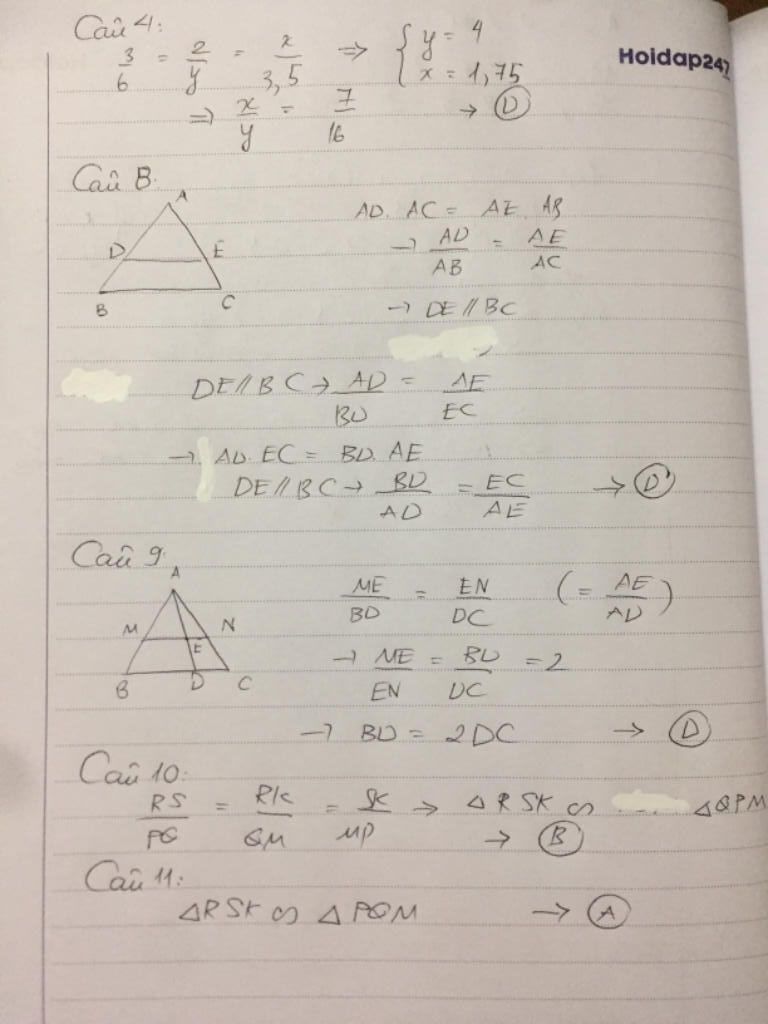 Câu 4:
3/6 = 2/y = x/3,5 ⇒ { y = 4
x = 1,75
Hoidap247
⇒ x/y = 7/16 → D
Câu 8.
A
D E
B C
AD. AC = AE. AB
→ AD/AB = AE/AC
→ DE // BC
DE // BC → AD/BD = AE/EC
→ AD. EC = BD. AE
DE // BC → BD/AD = EC/AE → D
Câu 9.
A
M N
E
B D C
ME/BD = EN/DC (= AE/AD)
→ ME/EN = BD/DC = 2
→ BD = 2DC → D
Câu 10:
RS/PQ = RK/QM = SK/MP → △RSK ∽ △QPM
→ B
Câu 11:
△RSK ∽ △PQM → A